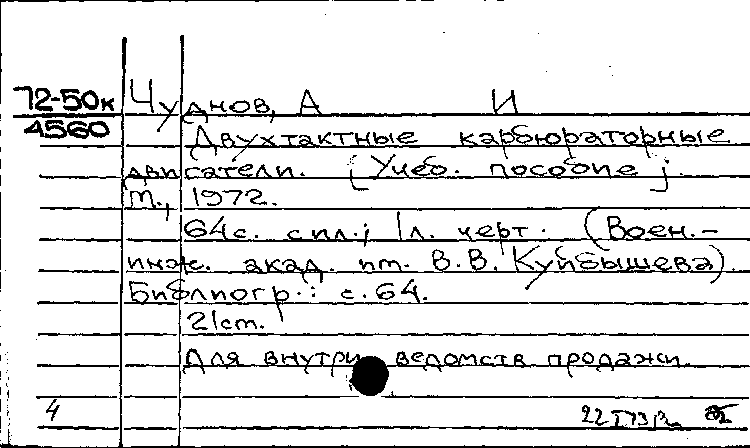 72-50к Чуднов, А И
4560
Двухтактные карбюраторные
двигатели. [Учеб. пособие].
М., 1972.
64с. с ил.; 1л. черт. (Воен.-
инж. акад. им. В.В. Куйбышева)
Библиогр.: с.64.
21см.
Для внутри ведомств продажи
4 22 I 73